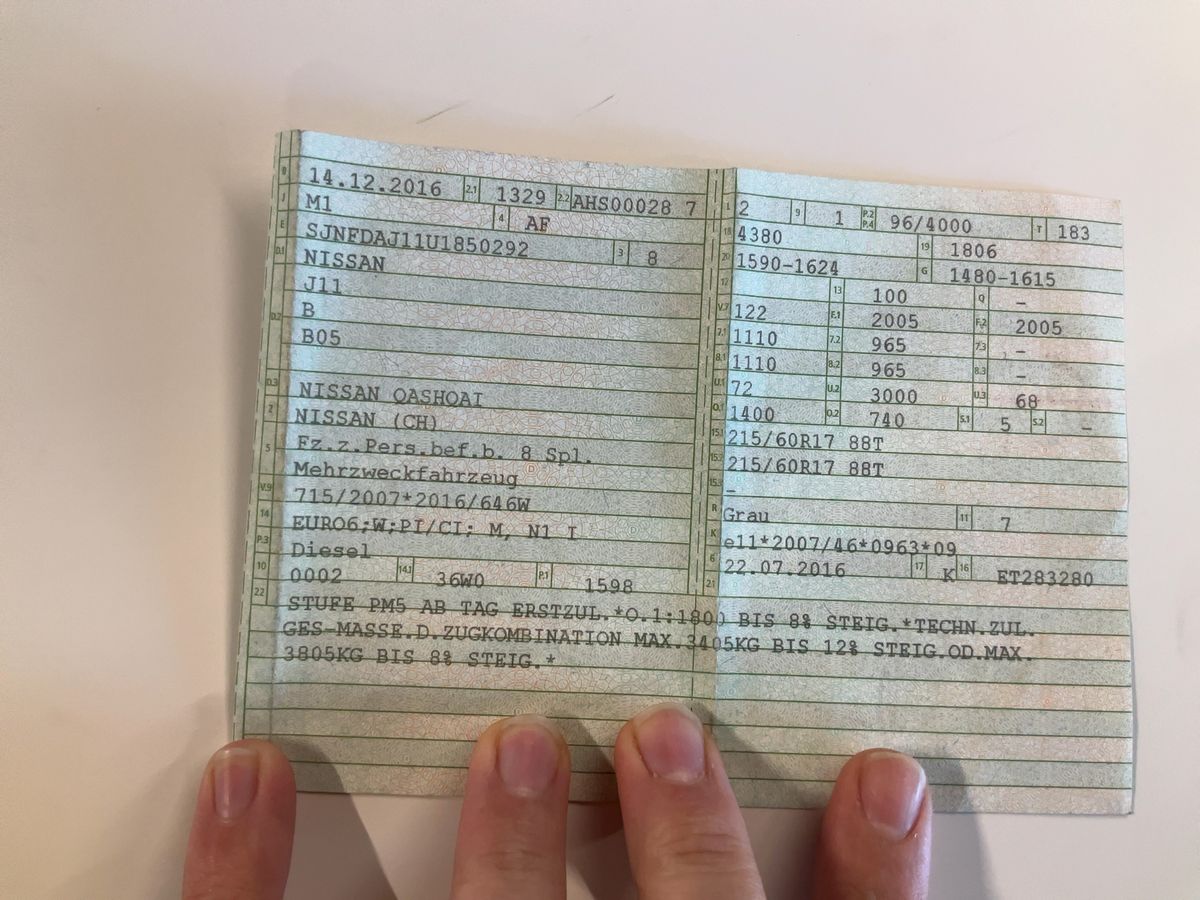 B 14.12.2016 2.1 1329 2.2 AHS00028 7
J M1 4 AF
E SJNFDAJ11U1850292 3 8
D.1 NISSAN
J11
D.2 B
B05
D.3 NISSAN QASHQAI
2 NISSAN (CH)
5 Fz.z.Pers.bef.b. 8 Spl.
Mehrzweckfahrzeug
V.9 715/2007*2016/646W
14 EURO6;W;PI/CI; M, N1 I
P.3 Diesel
10 0002 14.1 36W0 P.1 1598
L 2 9 1 P.2 P.4 96/4000 T 183
18 4380 19 1806
20 1590-1624 G 1480-1615
12 13 100 Q –
V.7 122 F.1 2005 F.2 2005
7.1 1110 7.2 965 7.3 –
8.1 1110 8.2 965 8.3 –
U.1 72 U.2 3000 U.3 68
O.1 1400 O.2 740 S.1 5 S.2 –
15.1 215/60R17 88T
15.2 215/60R17 88T
15.3 –
R Grau 11 7
K e11*2007/46*0963*09
6 22.07.2016 17 K 16 ET283280
21
22 STUFE PM5 AB TAG ERSTZUL.*O.1:1800 BIS 8% STEIG.*TECHN.ZUL.
GES-MASSE.D.ZUGKOMBINATION MAX.3405KG BIS 12% STEIG.OD.MAX.
3805KG BIS 8% STEIG.*